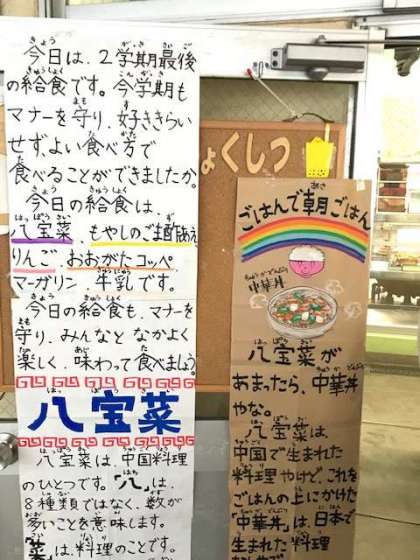 今日は、2学期最後
の給食です。今学期も
マナーを守り、好ききらい
せず、よい食べ方で
食べることができましたか。
今日の給食は、
八宝菜、もやしのごま酢あえ、
りんご、おおがたコッペ、
マーガリン、牛乳です。
今日の給食も、マナーを
守り、みんなとなかよく
楽しく、味わって食べましょう。
八宝菜
八宝菜は、中国料理
のひとつです。「八」は、
8種類ではなく、数が
多いことを意味します。
「菜」は、料理のことです。
ょくしつ
ごはんで朝ごはん
中華丼
八宝菜が
あまったら、中華丼
やな。
八宝菜は、
中国で生まれた
料理やけど、これを
ごはんの上にかけた
「中華丼」は、日本で
生まれた料理